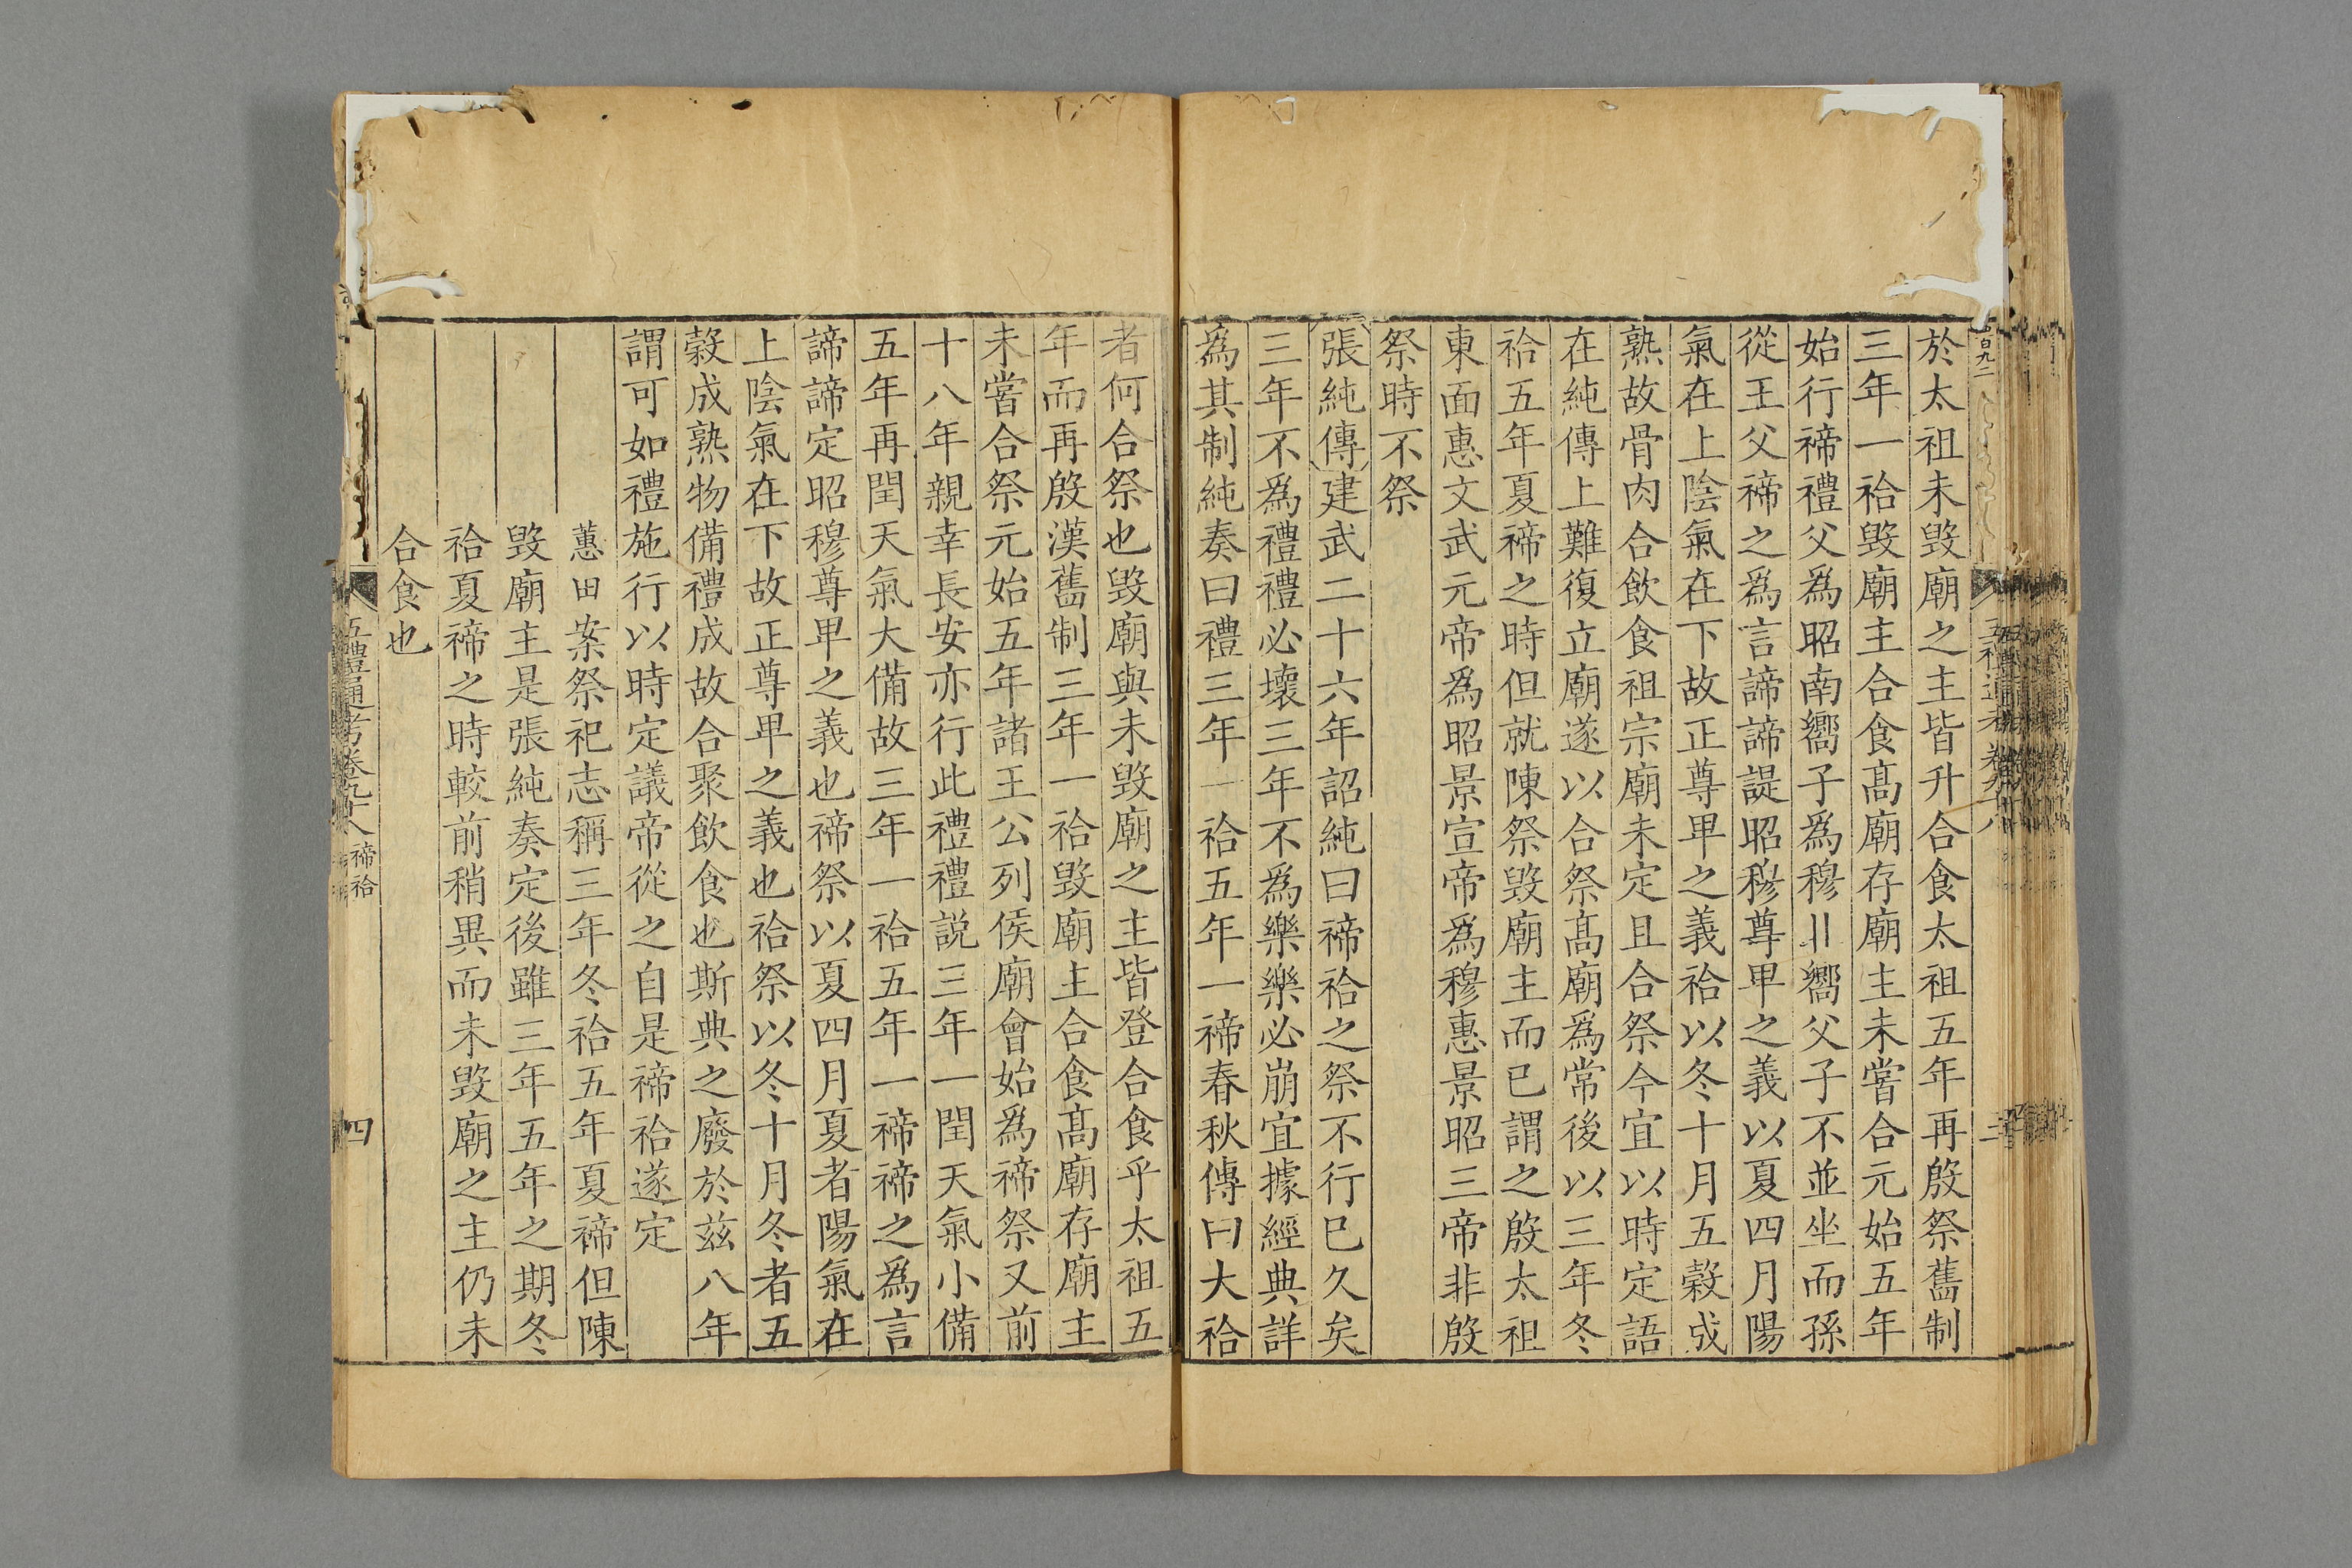 於太祖未毀廟之主皆升合食太祖五年再殷祭舊制
三年一祫毀廟主合食髙廟存廟主未嘗合元始五年
始行禘禮父爲昭南嚮子爲穆北嚮父子不並坐而孫
從王父禘之爲言諦諦諟昭穆尊卑之義以夏四月陽
氣在上陰氣在下故正尊卑之義祫以冬十月五穀成
熟故骨肉合飲食祖宗廟未定且合祭今宜以時定語
在純傳上難復立廟遂以合祭髙廟爲常後以三年冬
祫五年夏禘之時但就陳祭毀廟主而已謂之殷太祖
東面惠文武元帝爲昭景宣帝爲穆惠景昭三帝非殷
祭時不祭
張純傳建武二十六年詔純曰禘祫之祭不行已久矣
三年不爲禮禮必壞三年不爲樂樂必崩宜據經典詳
爲其制純奏曰禮三年一祫五年一禘春秋傳曰大祫
者何合祭也毀廟與未毀廟之主皆登合食乎太祖五
年而再殷漢舊制三年一祫毀廟主合食髙廟存廟主
未嘗合祭元始五年諸王公列侯廟會始爲禘祭又前
十八年親幸長安亦行此禮禮說三年一閏天氣小備
五年再閏天氣大備故三年一祫五年一禘禘之爲言
諦諦定昭穆尊卑之義也禘祭以夏四月夏者陽氣在
上陰氣在下故正尊卑之義也祫祭以冬十月冬者五
穀成熟物備禮成故合聚飲食也斯典之廢於茲八年
謂可如禮施行以時定議帝從之自是禘祫遂定
蕙田案祭祀志稱三年冬祫五年夏禘但陳
毀廟主是張純奏定後雖三年五年之期冬
祫夏禘之時較前稍異而未毀廟之主仍未
合食也
五禮通考卷九十八 禘祫
四